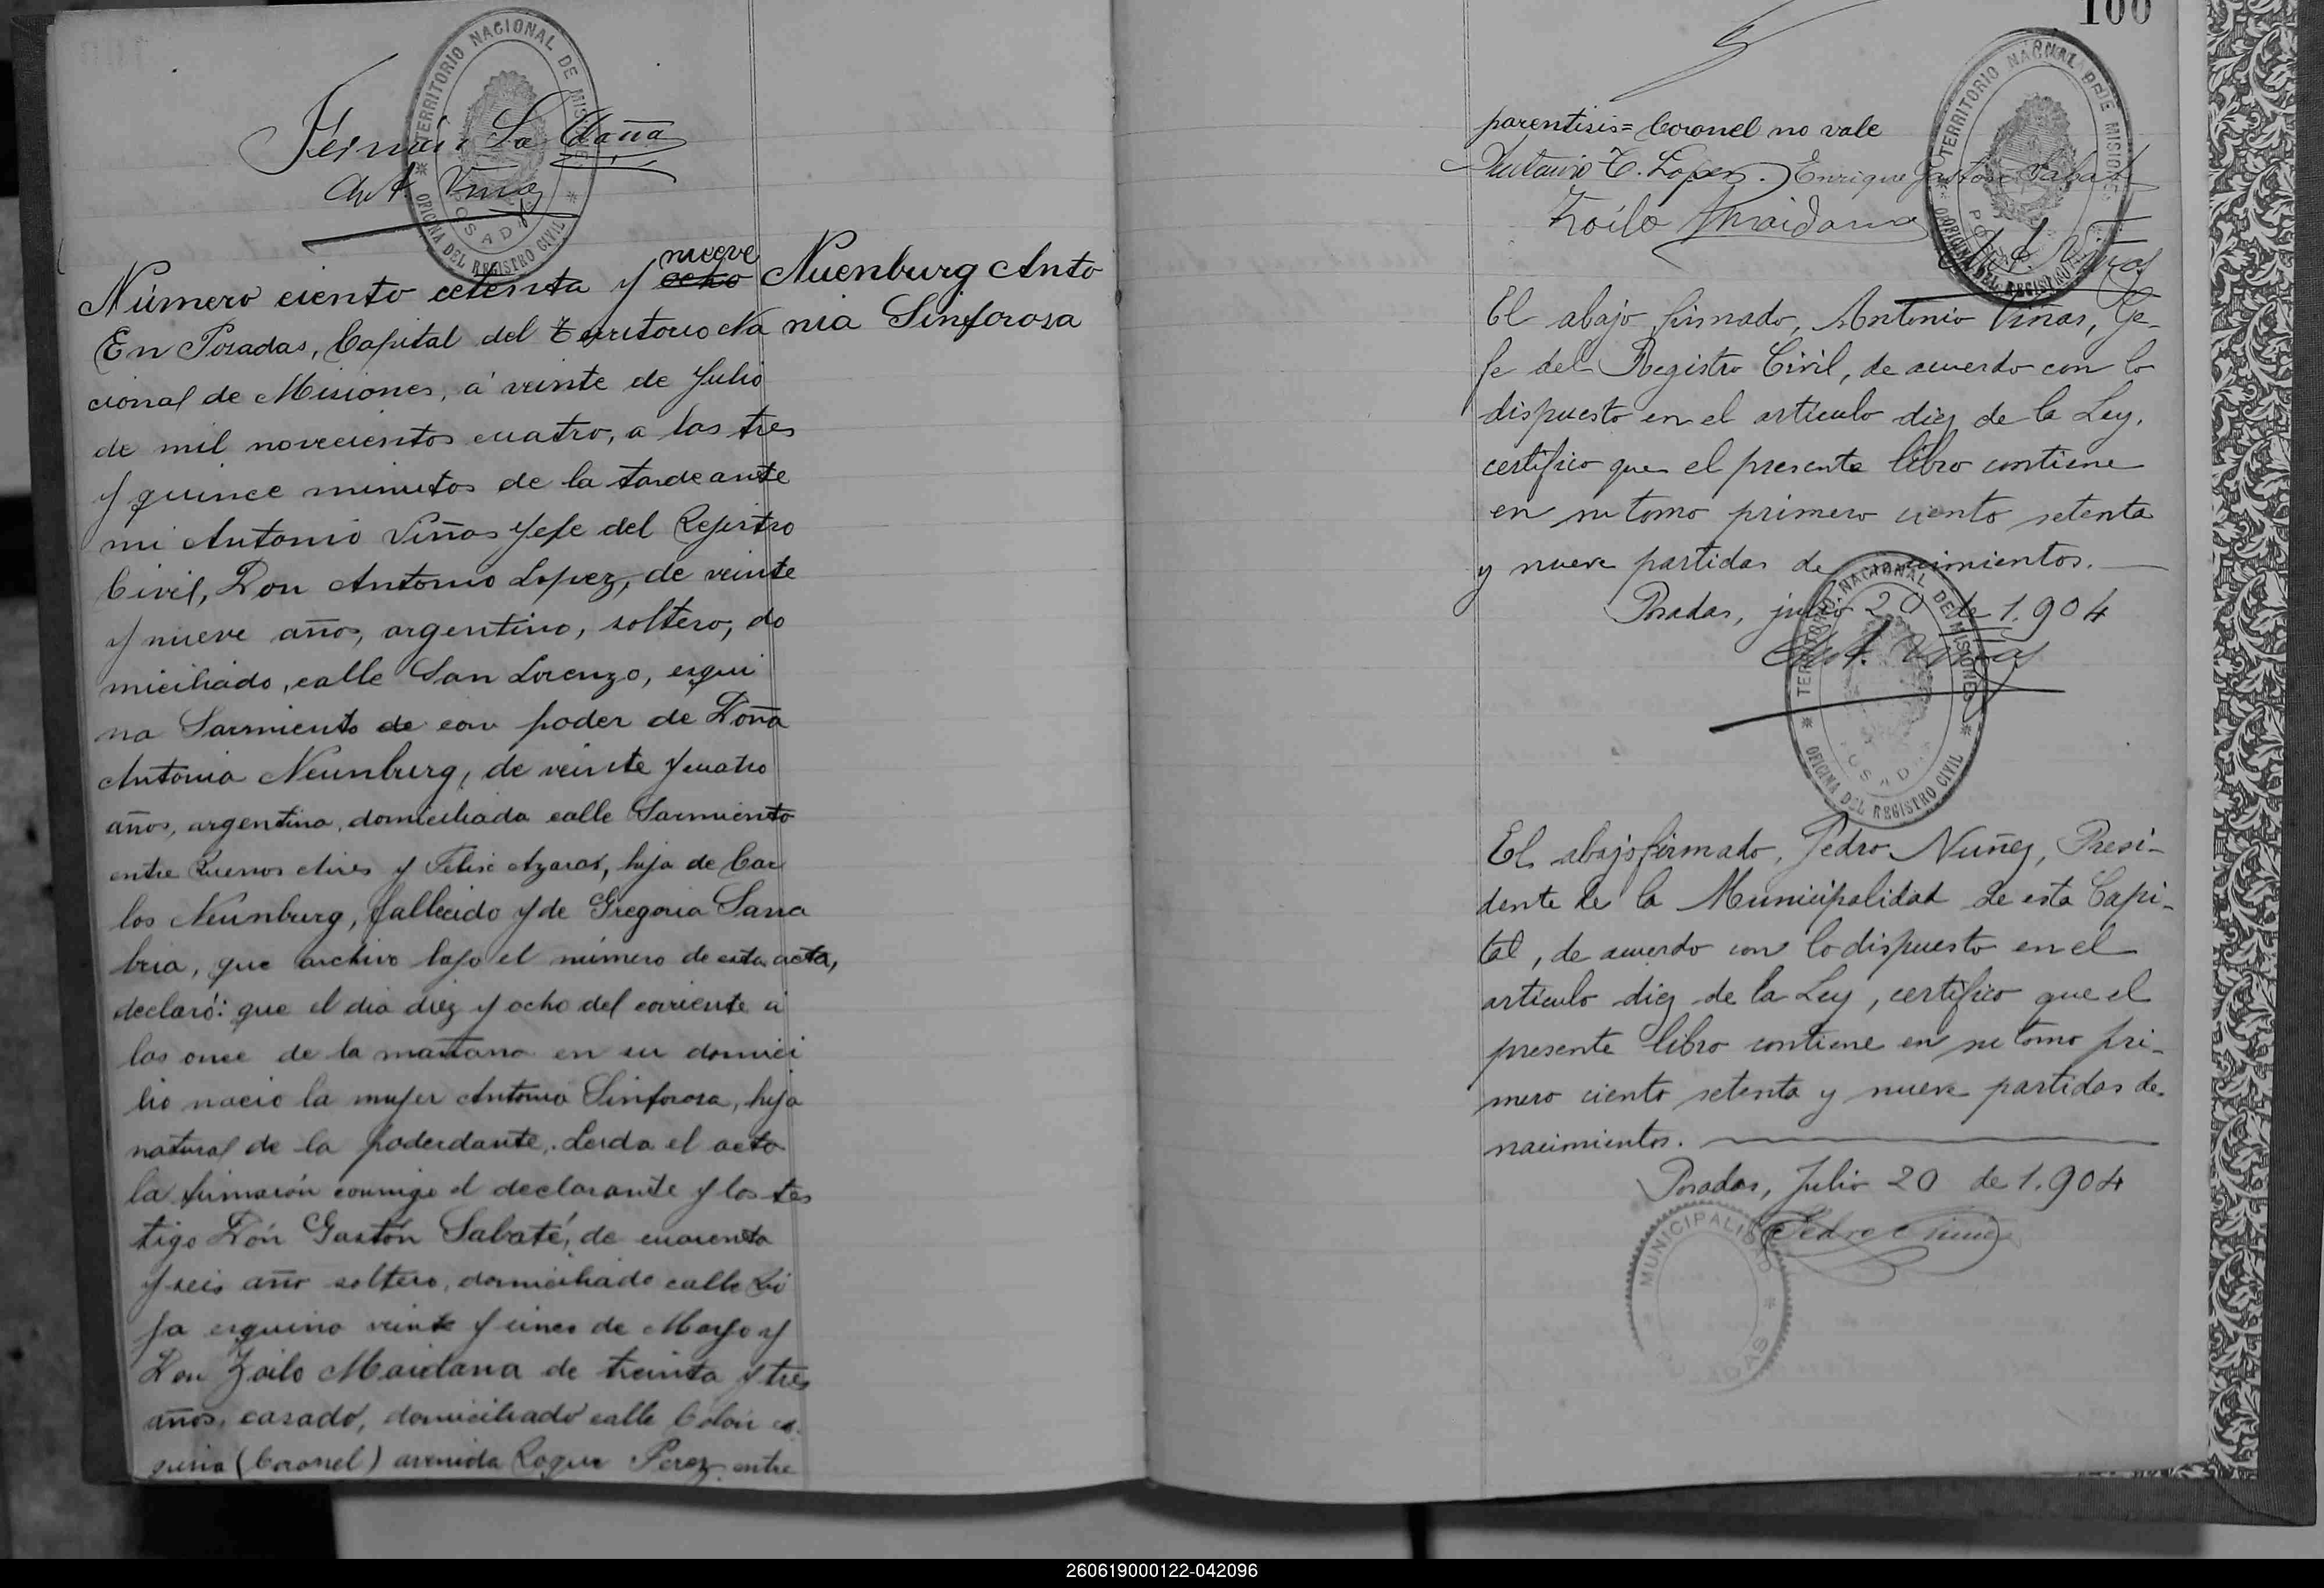 TERRITORIO NACIONAL DE MISIONES
OFICINA DEL REGISTRO CIVIL
POSADAS
Fermín La Caña
Ant. Viñas
nueve
Número ciento cetenta y ocho
Nuenburg Anto
nia Sinforosa
En Posadas, Capital del Territorio Na
cional de Misiones, á veinte de Julio
de mil novecientos cuatro, a las tres
y quince minutos de la tarde ante
mi Antonio Viñas Jefe del Rejistro
Civil, Don Antonio Lopez, de veinte
y nueve años, argentino, soltero, do
miciliado, calle San Lorenzo, esqui
na Sarmiento de con poder de Doña
Antonia Neunburg, de veinte y cuatro
años, argentina, domiciliada calle Sarmiento
entre Buenos Aires y Felix Azaras, hija de Car
los Neunburg, fallecido y de Gregoria Sana
bria, que archivo bajo el número de esta acta,
declaró: que el dia diez y ocho del corriente á
las once de la mañana en su domici
lio nacio la mujer Antonia Sinforosa, hija
natural de la poderdante. Leida el acta
la firmarón conmigo el declarante y los tes
tigo Dón Gastón Sabaté, de cuarenta
y seis año soltero, domiciliado calle Rio
ja esquina veinte y cinco de Mayo y
Don Zoilo Maidana de treinta y tres
años, casado, domiciliado calle Colón es
quina (Coronel) avenida Roque Perez entre
100
TERRITORIO NACIONAL DE MISIONES
OFICINA DEL REGISTRO CIVIL
parentisis = Coronel no vale
Antonio C. Lopez. Enrique Gaston Sabaté
Zoilo Maidana
Ant. Viñas
El abajo firmado, Antonio Viñas, Ge-
fe del Registro Civil, de acuerdo con lo
dispuesto en el artículo diez de la Ley,
certifico que el presente libro contiene
en su tomo primero ciento setenta
y nueve partidas de nacimientos.
Posadas, julio 20 de 1.904
Ant. Viñas
TERRITORIO NACIONAL DE MISIONES
POSADAS
OFICINA DEL REGISTRO CIVIL
El abajo firmado, Pedro Nuñez, Presi-
dente de la Municipalidad de esta Capi-
tal, de acuerdo con lo dispuesto en el
artículo diez de la Ley, certifico que el
presente libro contiene en su tomo pri-
mero ciento setenta y nueve partidas de
nacimientos.
Posadas, Julio 20 de 1.904
Pedro Nuñez
MUNICIPALIDAD
POSADAS
260619000122-042096